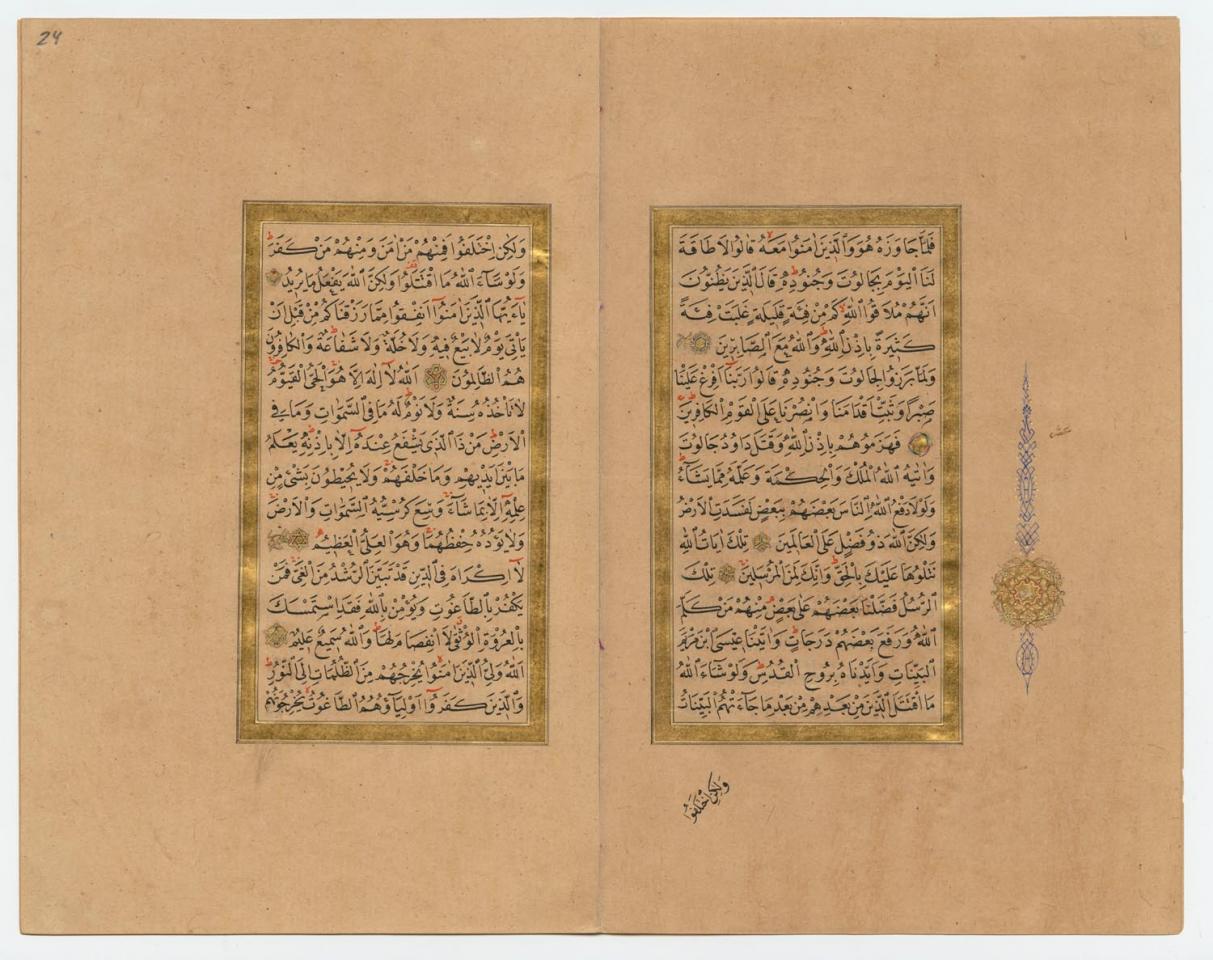 فَلَمَّا جَاوَزَهُ هُوَ وَالَّذِينَ اٰمَنُوا مَعَهُ قَالُوا لَا طَاقَةَ
لَنَا الْيَوْمَ بِجَالُوتَ وَجُنُودِهِ قَالَ الَّذِينَ يَظُنُّونَ
اَنَّهُمْ مُلَاقُوا اللّٰهِ كَمْ مِنْ فِئَةٍ قَلِيلَةٍ غَلَبَتْ فِئَةً
كَثِيرَةً بِاِذْنِ اللّٰهِ وَاللّٰهُ مَعَ الصَّابِرِينَ
وَلَمَّا بَرَزُوا لِجَالُوتَ وَجُنُودِهِ قَالُوا رَبَّنَا اَفْرِغْ عَلَيْنَا
صَبْرًا وَثَبِّتْ اَقْدَامَنَا وَانْصُرْنَا عَلَى الْقَوْمِ الْكَافِرِينَ
فَهَزَمُوهُمْ بِاِذْنِ اللّٰهِ وَقَتَلَ دَاوُدُ جَالُوتَ
وَاٰتٰيهُ اللّٰهُ الْمُلْكَ وَالْحِكْمَةَ وَعَلَّمَهُ مِمَّا يَشَٓاءُ
وَلَوْلَا دَفْعُ اللّٰهِ النَّاسَ بَعْضَهُمْ بِبَعْضٍ لَفَسَدَتِ الْاَرْضُ
وَلٰكِنَّ اللّٰهَ ذُو فَضْلٍ عَلَى الْعَالَمِينَ تِلْكَ اٰيَاتُ اللّٰهِ
نَتْلُوهَا عَلَيْكَ بِالْحَقِّ وَاِنَّكَ لَمِنَ الْمُرْسَلِينَ تِلْكَ
الرُّسُلُ فَضَّلْنَا بَعْضَهُمْ عَلٰى بَعْضٍ مِنْهُمْ مَنْ كَلَّمَ
اللّٰهُ وَرَفَعَ بَعْضَهُمْ دَرَجَاتٍ وَاٰتَيْنَا عِيسَى ابْنَ مَرْيَمَ
الْبَيِّنَاتِ وَاَيَّدْنَاهُ بِرُوحِ الْقُدُسِ وَلَوْ شَٓاءَ اللّٰهُ
مَا اقْتَتَلَ الَّذِينَ مِنْ بَعْدِهِمْ مِنْ بَعْدِ مَا جَٓاءَتْهُمُ الْبَيِّنَاتُ
وَلٰكِنِ اخْتَلَفُوا
24
وَلٰكِنِ اخْتَلَفُوا فَمِنْهُمْ مَنْ اٰمَنَ وَمِنْهُمْ مَنْ كَفَرَ
وَلَوْ شَٓاءَ اللّٰهُ مَا اقْتَتَلُوا وَلٰكِنَّ اللّٰهَ يَفْعَلُ مَا يُرِيدُ
يَٓا اَيُّهَا الَّذِينَ اٰمَنُوا اَنْفِقُوا مِمَّا رَزَقْنَاكُمْ مِنْ قَبْلِ اَنْ
يَاْتِيَ يَوْمٌ لَا بَيْعٌ فِيهِ وَلَا خُلَّةٌ وَلَا شَفَاعَةٌ وَالْكَافِرُونَ
هُمُ الظَّالِمُونَ اَللّٰهُ لَٓا اِلٰهَ اِلَّا هُوَ الْحَيُّ الْقَيُّومُ
لَا تَاْخُذُهُ سِنَةٌ وَلَا نَوْمٌ لَهُ مَا فِي السَّمٰوَاتِ وَمَا فِي
الْاَرْضِ مَنْ ذَا الَّذِي يَشْفَعُ عِنْدَهُ اِلَّا بِاِذْنِهِ يَعْلَمُ
مَا بَيْنَ اَيْدِيهِمْ وَمَا خَلْفَهُمْ وَلَا يُحِيطُونَ بِشَيْءٍ مِنْ
عِلْمِهِ اِلَّا بِمَا شَٓاءَ وَسِعَ كُرْسِيُّهُ السَّمٰوَاتِ وَالْاَرْضَ
وَلَا يَؤُدُهُ حِفْظُهُمَا وَهُوَ الْعَلِيُّ الْعَظِيمُ
لَٓا اِكْرَاهَ فِي الدِّينِ قَدْ تَبَيَّنَ الرُّشْدُ مِنَ الْغَيِّ فَمَنْ
يَكْفُرْ بِالطَّاغُوتِ وَيُؤْمِنْ بِاللّٰهِ فَقَدِ اسْتَمْسَكَ
بِالْعُرْوَةِ الْوُثْقٰى لَا انْفِصَامَ لَهَا وَاللّٰهُ سَمِيعٌ عَلِيمٌ
اَللّٰهُ وَلِيُّ الَّذِينَ اٰمَنُوا يُخْرِجُهُمْ مِنَ الظُّلُمَاتِ اِلَى النُّورِ
وَالَّذِينَ كَفَرُوا اَوْلِيَٓاؤُهُمُ الطَّاغُوتُ يُخْرِجُونَهُمْ